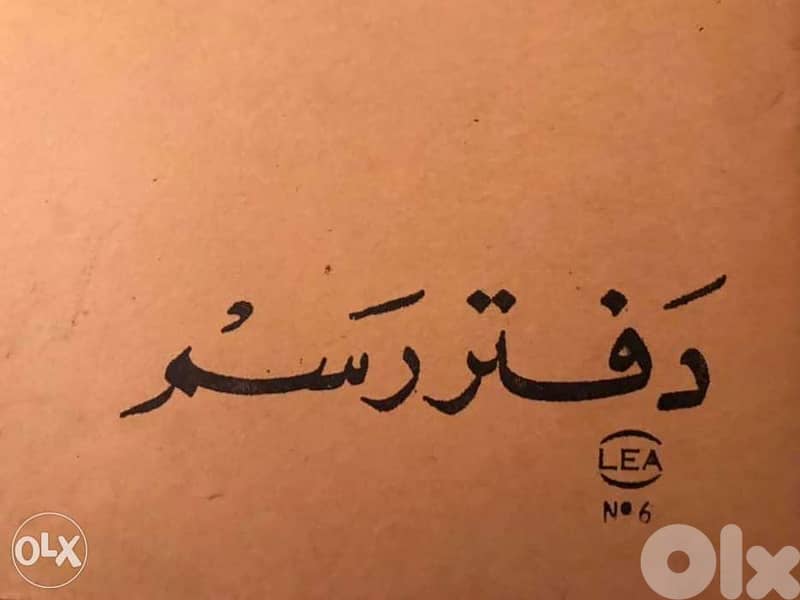 دَفتر رَسمْ
LEA
Nº 6
OLX
Olx